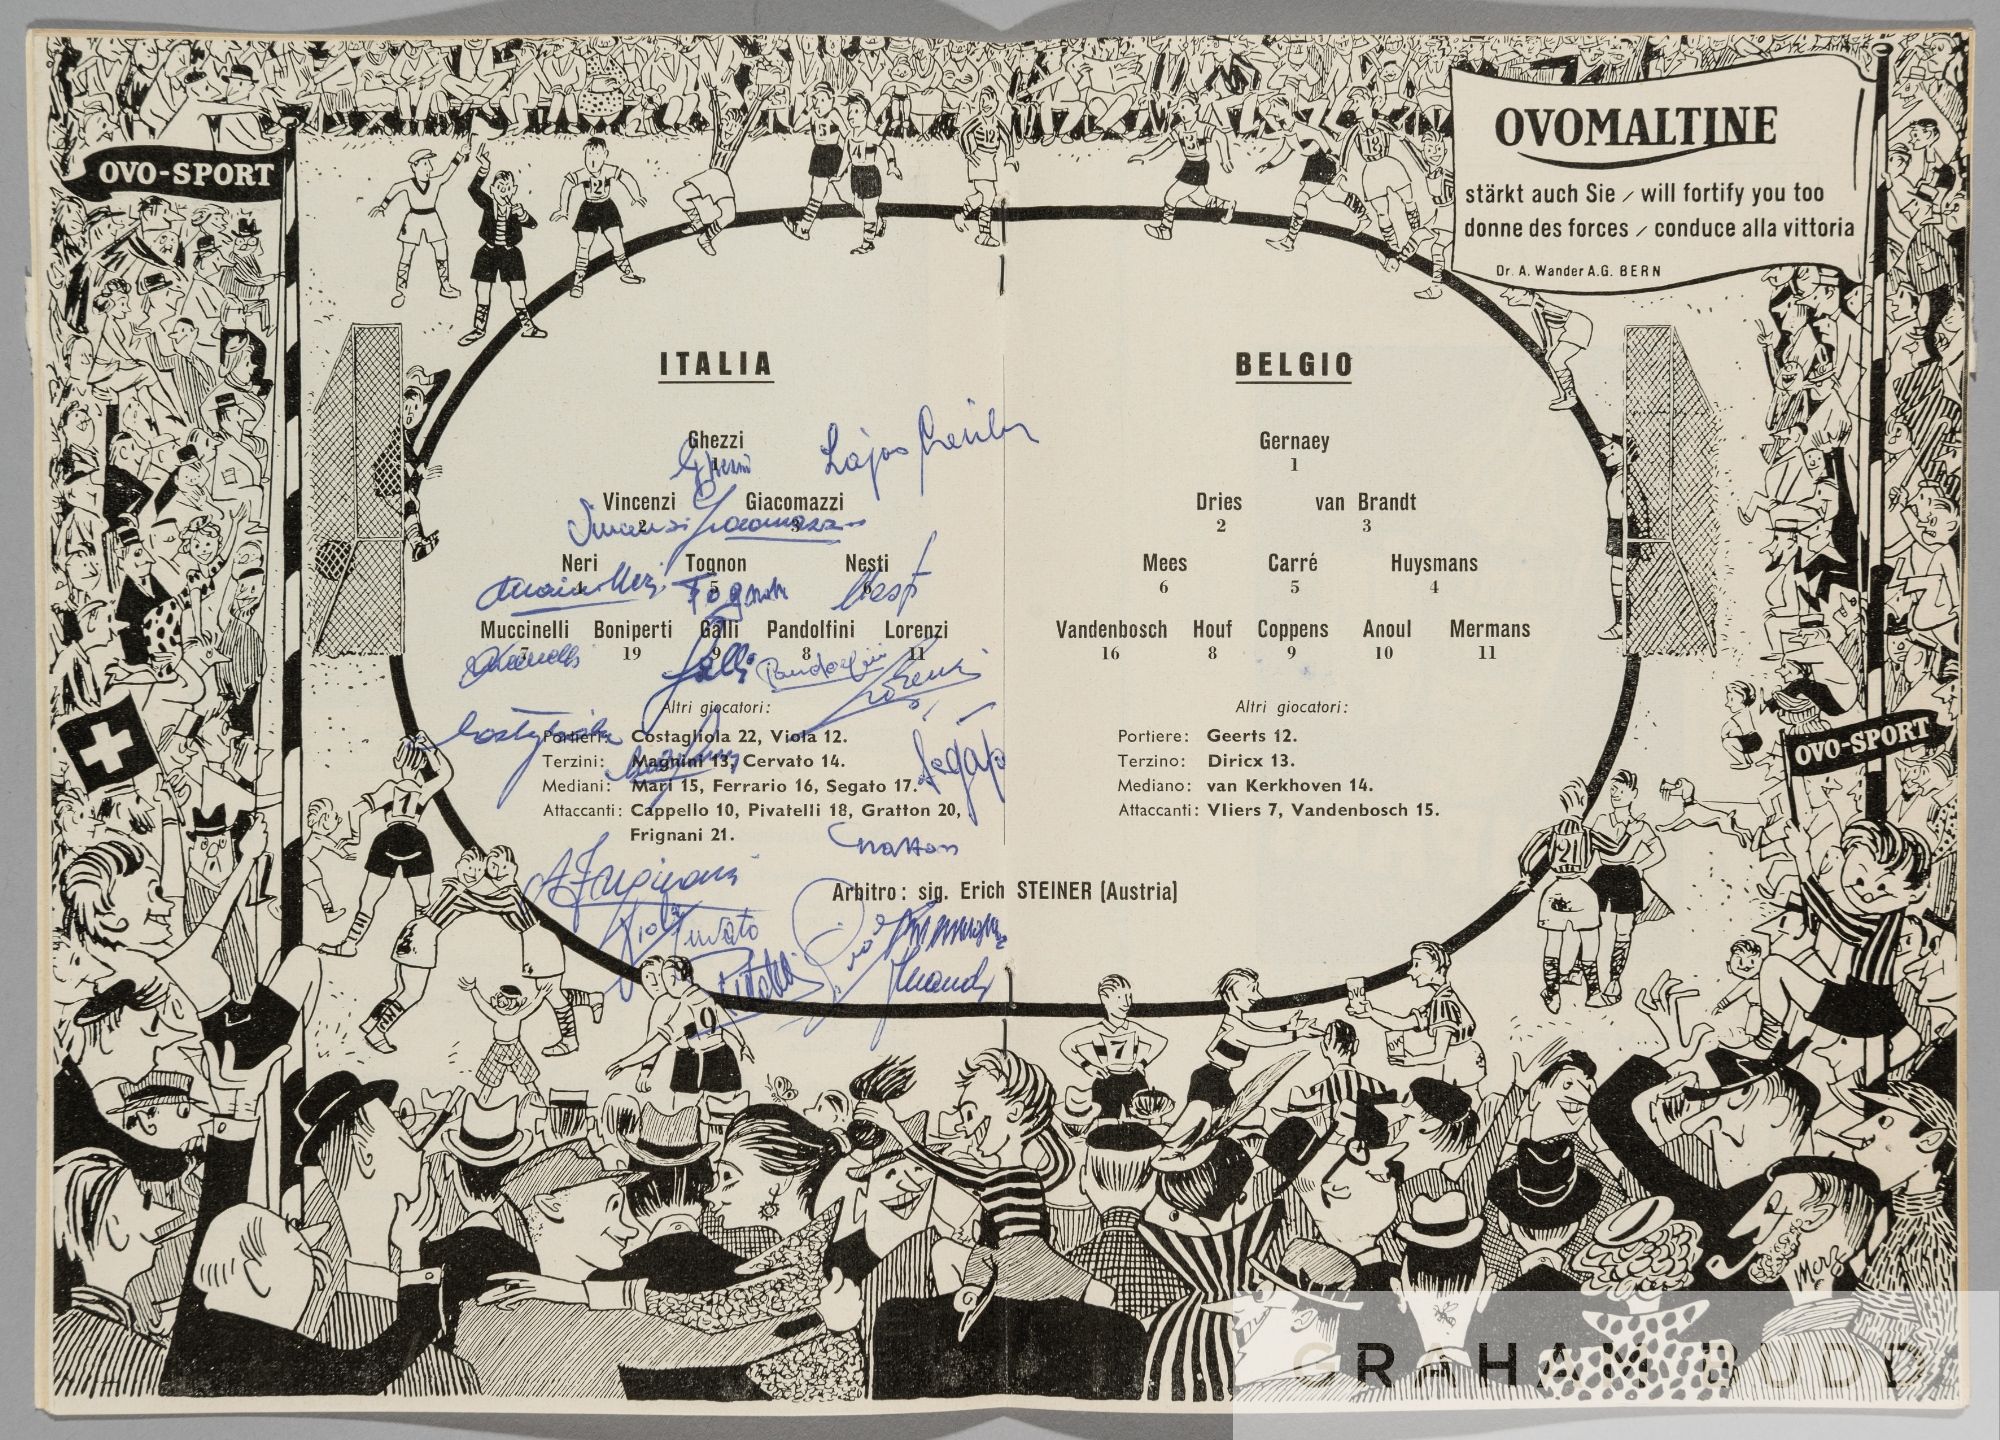 OVO-SPORT
OVOMALTINE
stärkt auch Sie / will fortify you too
donne des forces / conduce alla vittoria
Dr. A. Wander A.G. BERN
ITALIA
Ghezzi
1
Lajos
Vincenzi Giacomazzi
2 3
Neri Tognon Nesti
4 5 6
Tognon
Muccinelli Boniperti Galli Pandolfini Lorenzi
7 19 9 8 11
Galli Pandolfini Lorenzi
Altri giocatori:
Portieri: Costagliola 22, Viola 12.
Terzini: Magnini 13, Cervato 14.
Mediani: Mari 15, Ferrario 16, Segato 17.
Attaccanti: Cappello 10, Pivatelli 18, Gratton 20,
Frignani 21.
Segato
Gratton
Frignani
Viola
BELGIO
Gernaey
1
Dries van Brandt
2 3
Mees Carré Huysmans
6 5 4
Vandenbosch Houf Coppens Anoul Mermans
16 8 9 10 11
Altri giocatori:
Portiere: Geerts 12.
Terzino: Diricx 13.
Mediano: van Kerkhoven 14.
Attaccanti: Vliers 7, Vandenbosch 15.
Arbitro: sig. Erich STEINER (Austria)
OVO-SPORT
1
21
9
7
Moro
GRAHAM BUDD